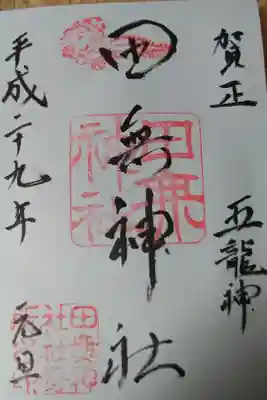 賀正 五龍神
田無神社
平成二十九年 元旦
田無
神社